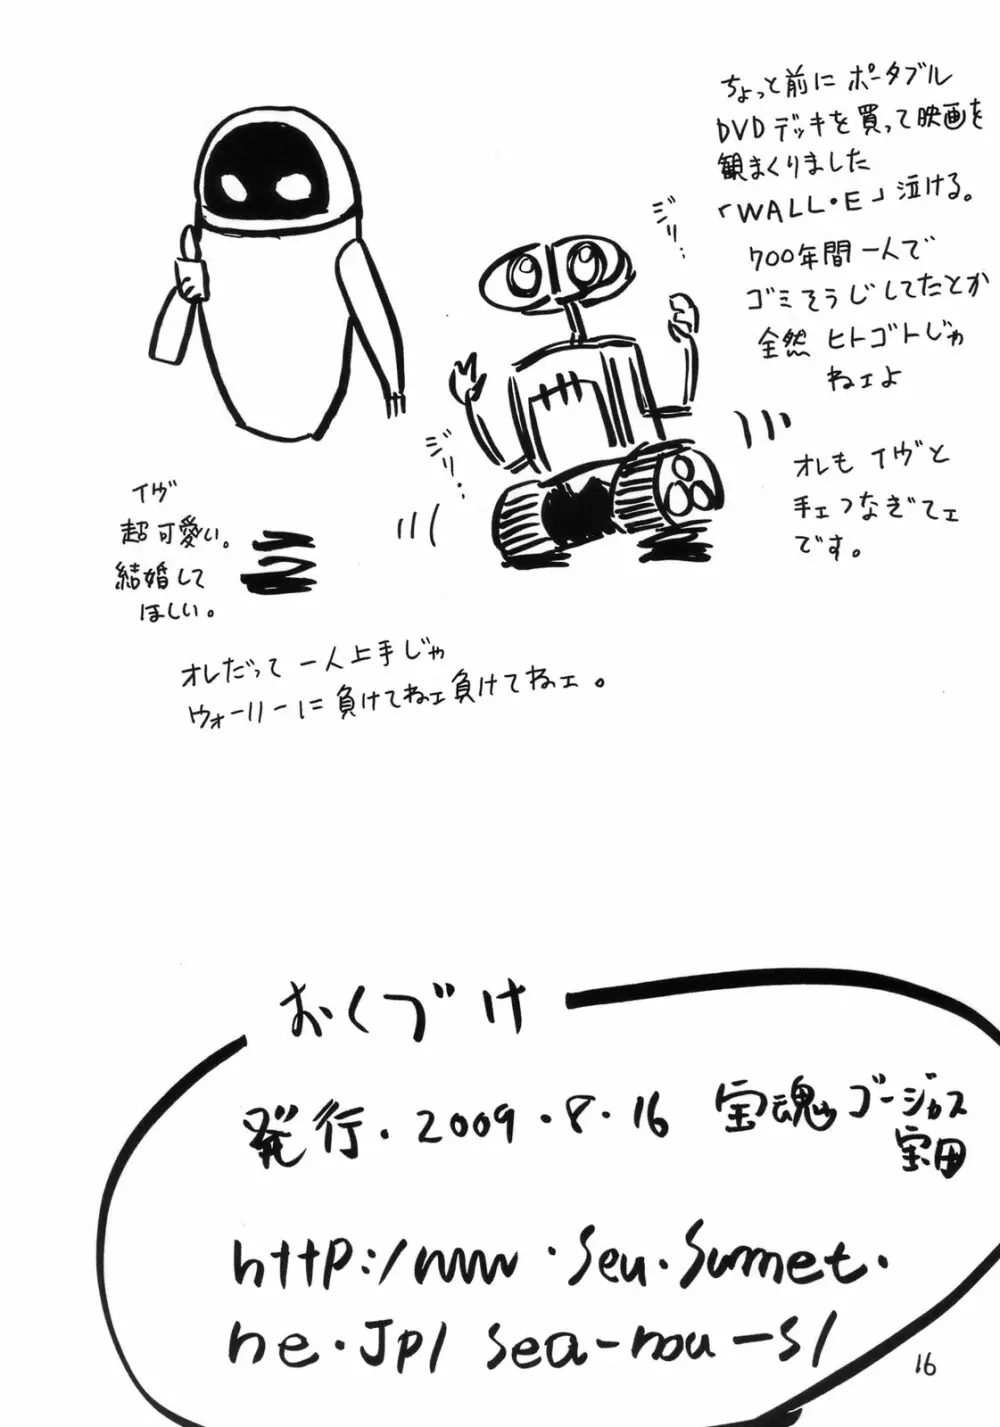 ちょっと前にポータブル
DVDデッキを買って映画を
観まくりました
「WALL・E」泣ける。
700年間一人で
ゴミそうじしてたとか
全然ヒトゴトじゃ
ねェよ
ジリ…
ジリ…
オレもイヴと
手ェつなぎてェ
です。
イヴ
超可愛い。
結婚して
ほしい。
オレだって一人上手じゃ
ウォーリーに負けてねェ負けてねェ。
おくづけ
発行.2009.8.16 宝魂 ゴージャス
宝田
http:/www.seu.sunnet.
ne.jp/sea-nou-s/
16